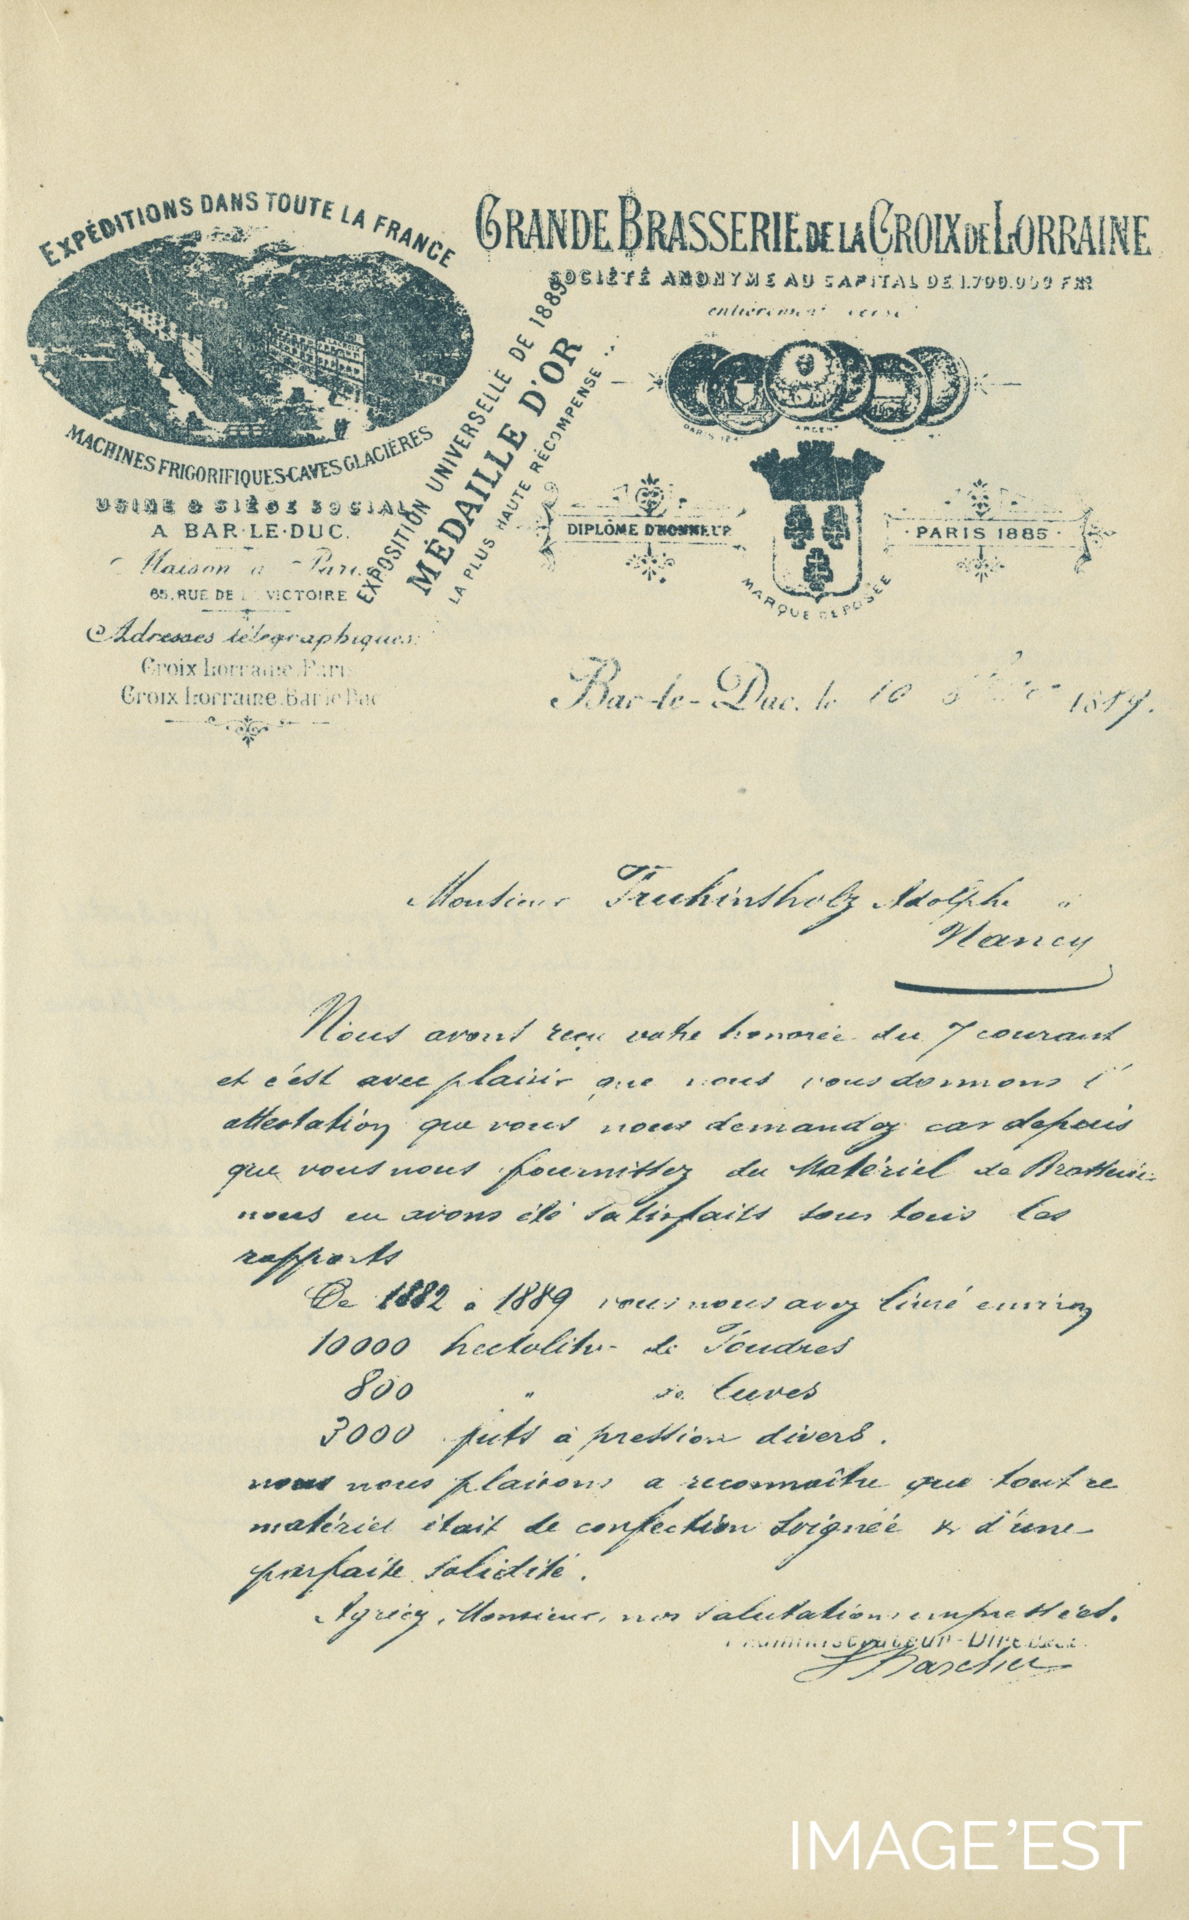 EXPÉDITIONS DANS TOUTE LA FRANCE
MACHINES FRIGORIFIQUES-CAVES GLACIÈRES
USINE & SIÈGE SOCIAL
A BAR-LE-DUC.
Maison à Paris
65, RUE DE LA VICTOIRE
Adresses télégraphiques:
Croix Lorraine. Paris
Croix Lorraine. Bar le Duc
EXPOSITION UNIVERSELLE DE 1889
MÉDAILLE D'OR
LA PLUS HAUTE RÉCOMPENSE
GRANDE BRASSERIE DE LA CROIX DE LORRAINE
SOCIÉTÉ ANONYME AU CAPITAL DE 1.700.000 FRS
entièrement versé
ARGENT
DIPLÔME D'HONNEUR
· PARIS 1885 ·
MARQUE DÉPOSÉE
Bar-le-Duc, le 10 1889.
Monsieur Fruhinsholz Adolphe à
Nancy
Nous avons reçu votre honorée du 7 courant
et c'est avec plaisir que nous vous donnons l'
attestation que vous nous demandez car depuis
que vous nous fournissez du Matériel de Brasserie
nous en avons été satisfaits sous tous les
rapports
De 1882 à 1889 vous nous avez livré environ
10000 hectolitr- de Foudres
800 " de Cuves
3000 futs à pression divers.
nous nous plaisons a reconnaître que tout ce
matériel était de confection soignée & d'une
parfaite solidité.
Agréez, Monsieur, nos salutations empressées.
Administrateur-Direct
IMAGE'EST